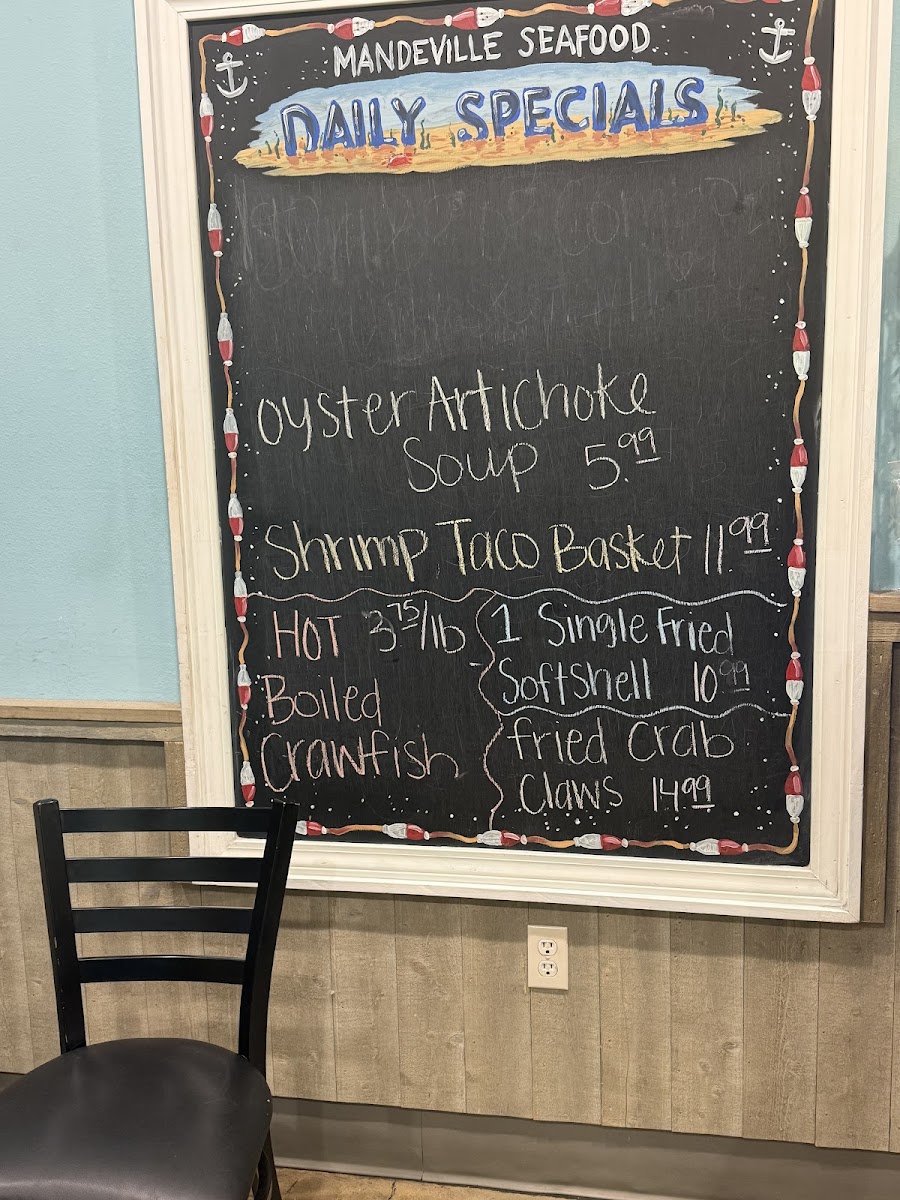 MANDEVILLE SEAFOOD
DAILY SPECIALS
oyster Artichoke
Soup 5.99
Shrimp Taco Basket 11.99
HOT 3.75/lb
Boiled
Crawfish
1 Single Fried
Softshell 10.99
fried crab
Claws 14.99